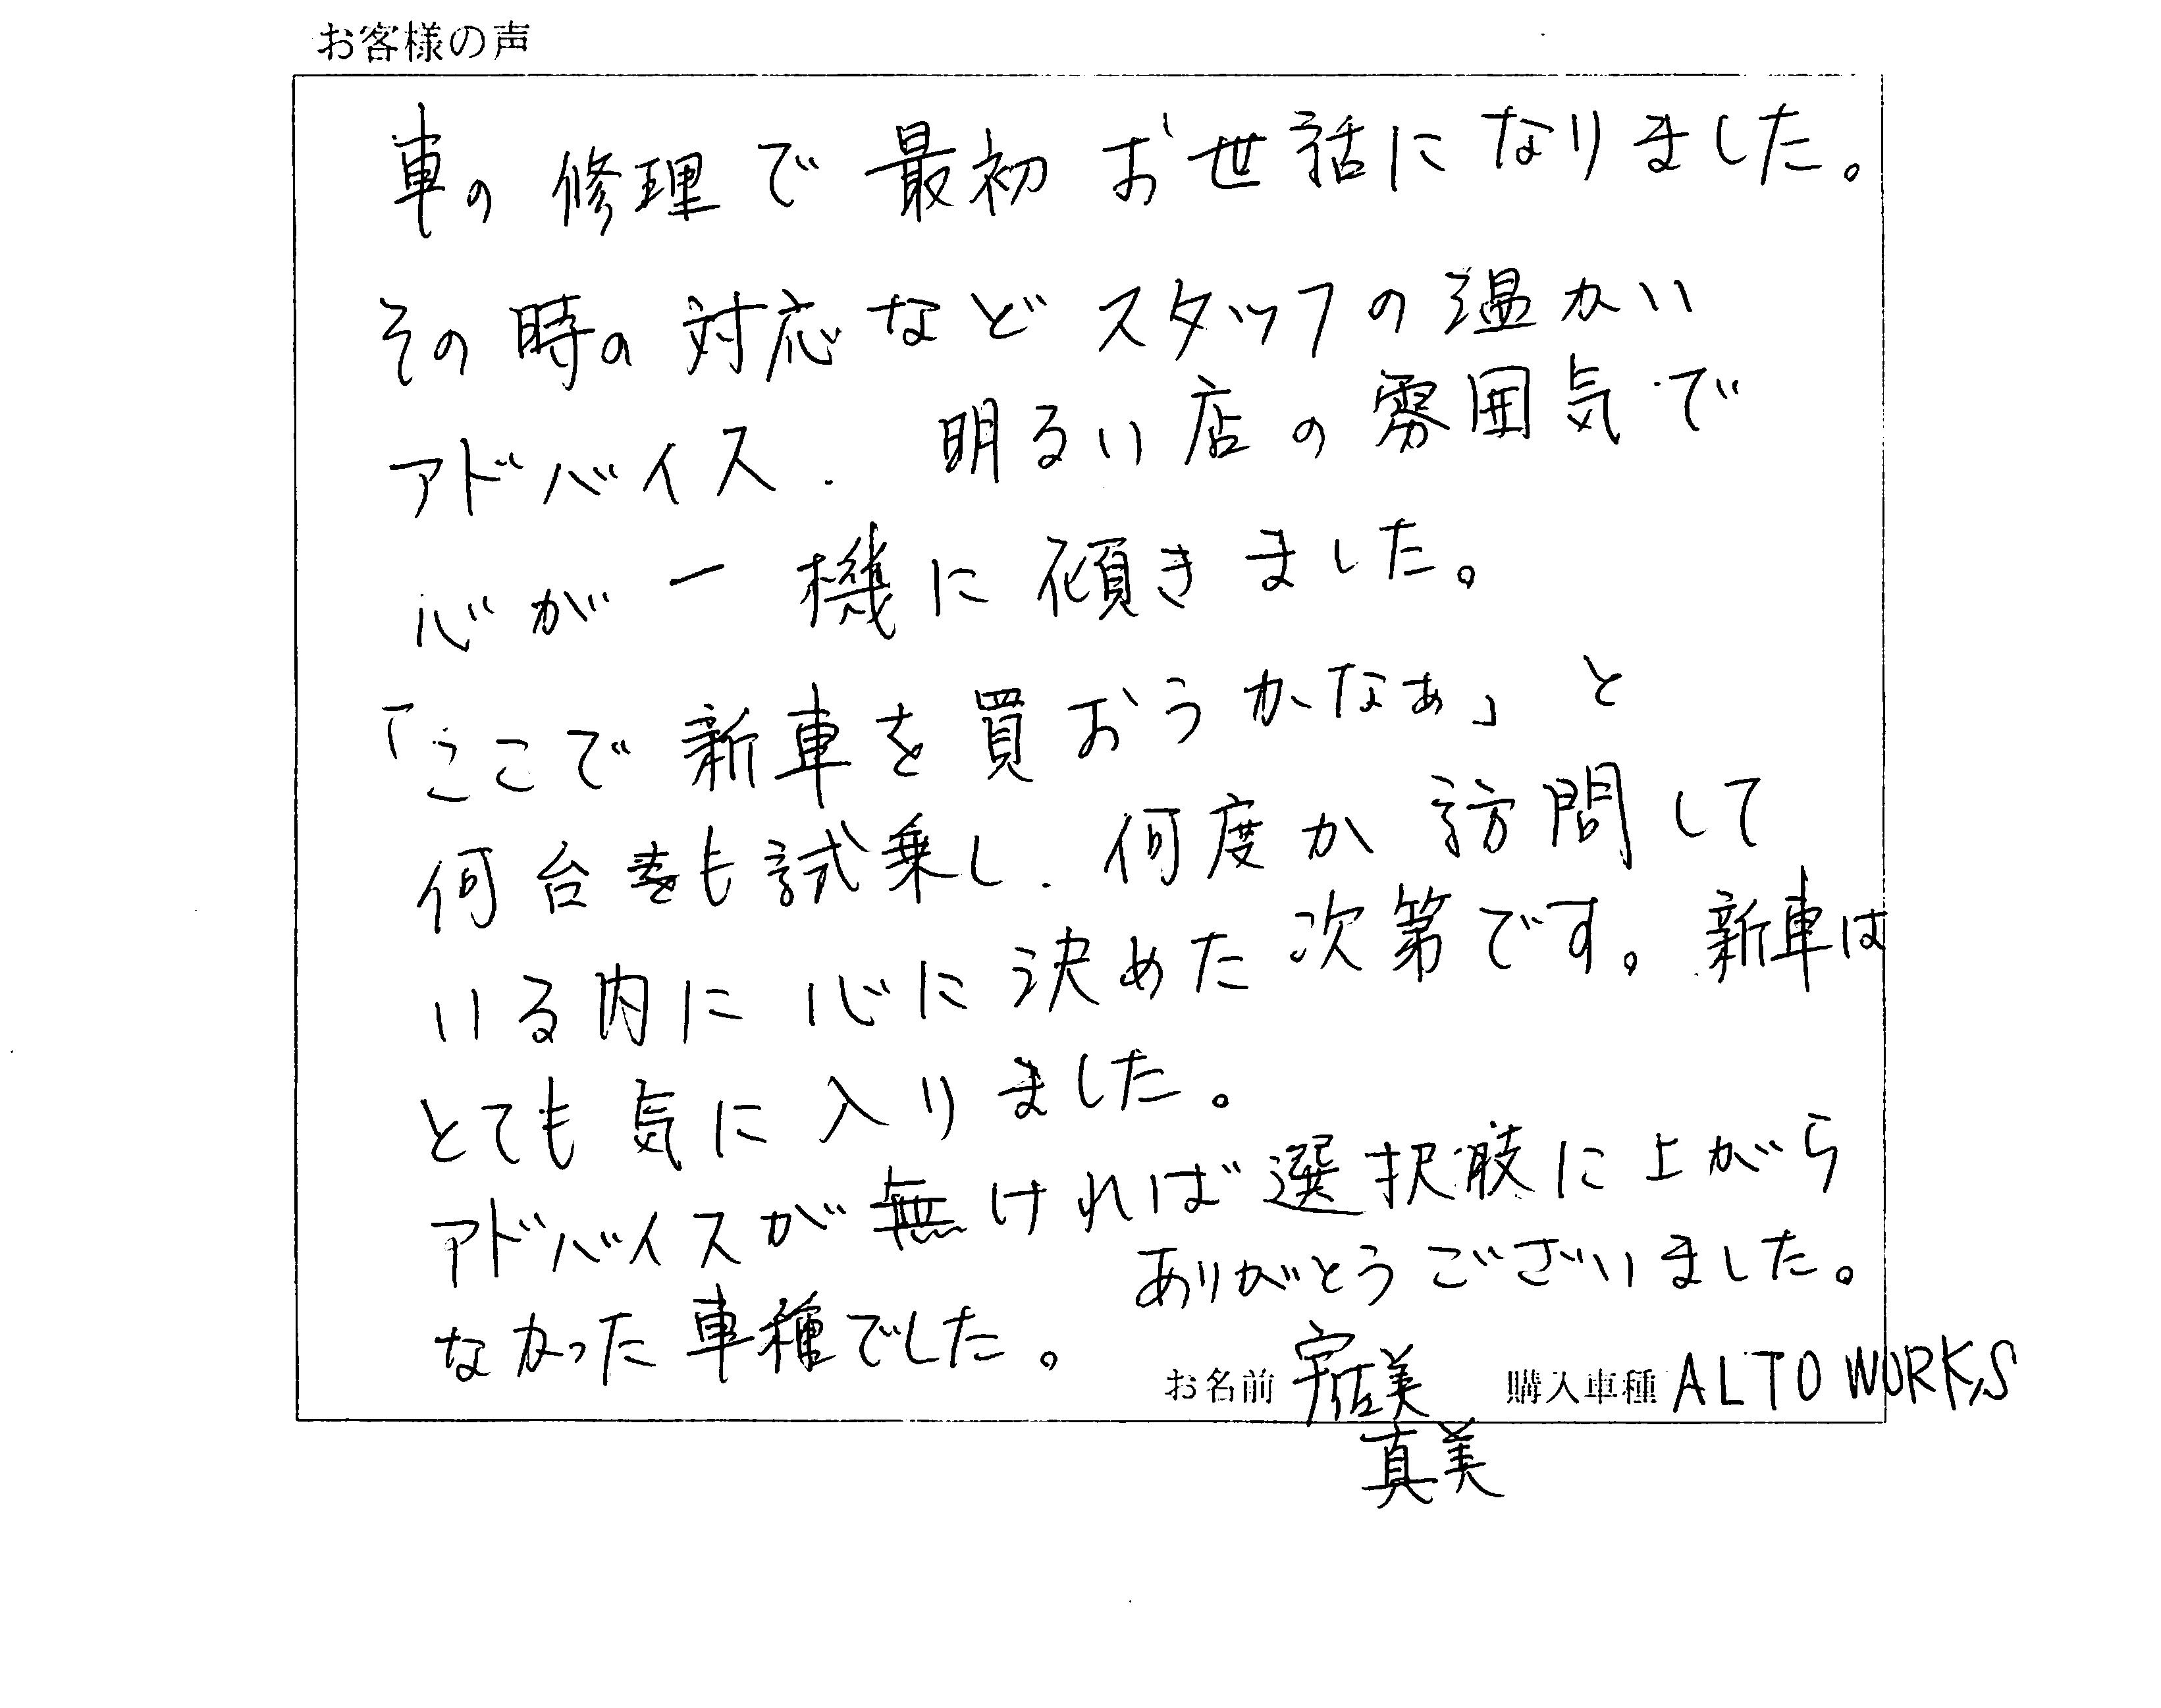 お客様の声
車の修理で最初お世話になりました。
その時の対応などスタッフの温かい
アドバイス、明るい店の雰囲気で
心が一機に傾きました。
「ここで新車を買おうかなぁ」と
何台も試乗し、何度か訪問して
いる内に心に決めた次第です。新車は
とても気に入りました。
アドバイスが無ければ選択肢に上がら
なかった車種でした。
ありがとうございました。
お名前 宇佐美 購入車種 ALTO WORKS
真美